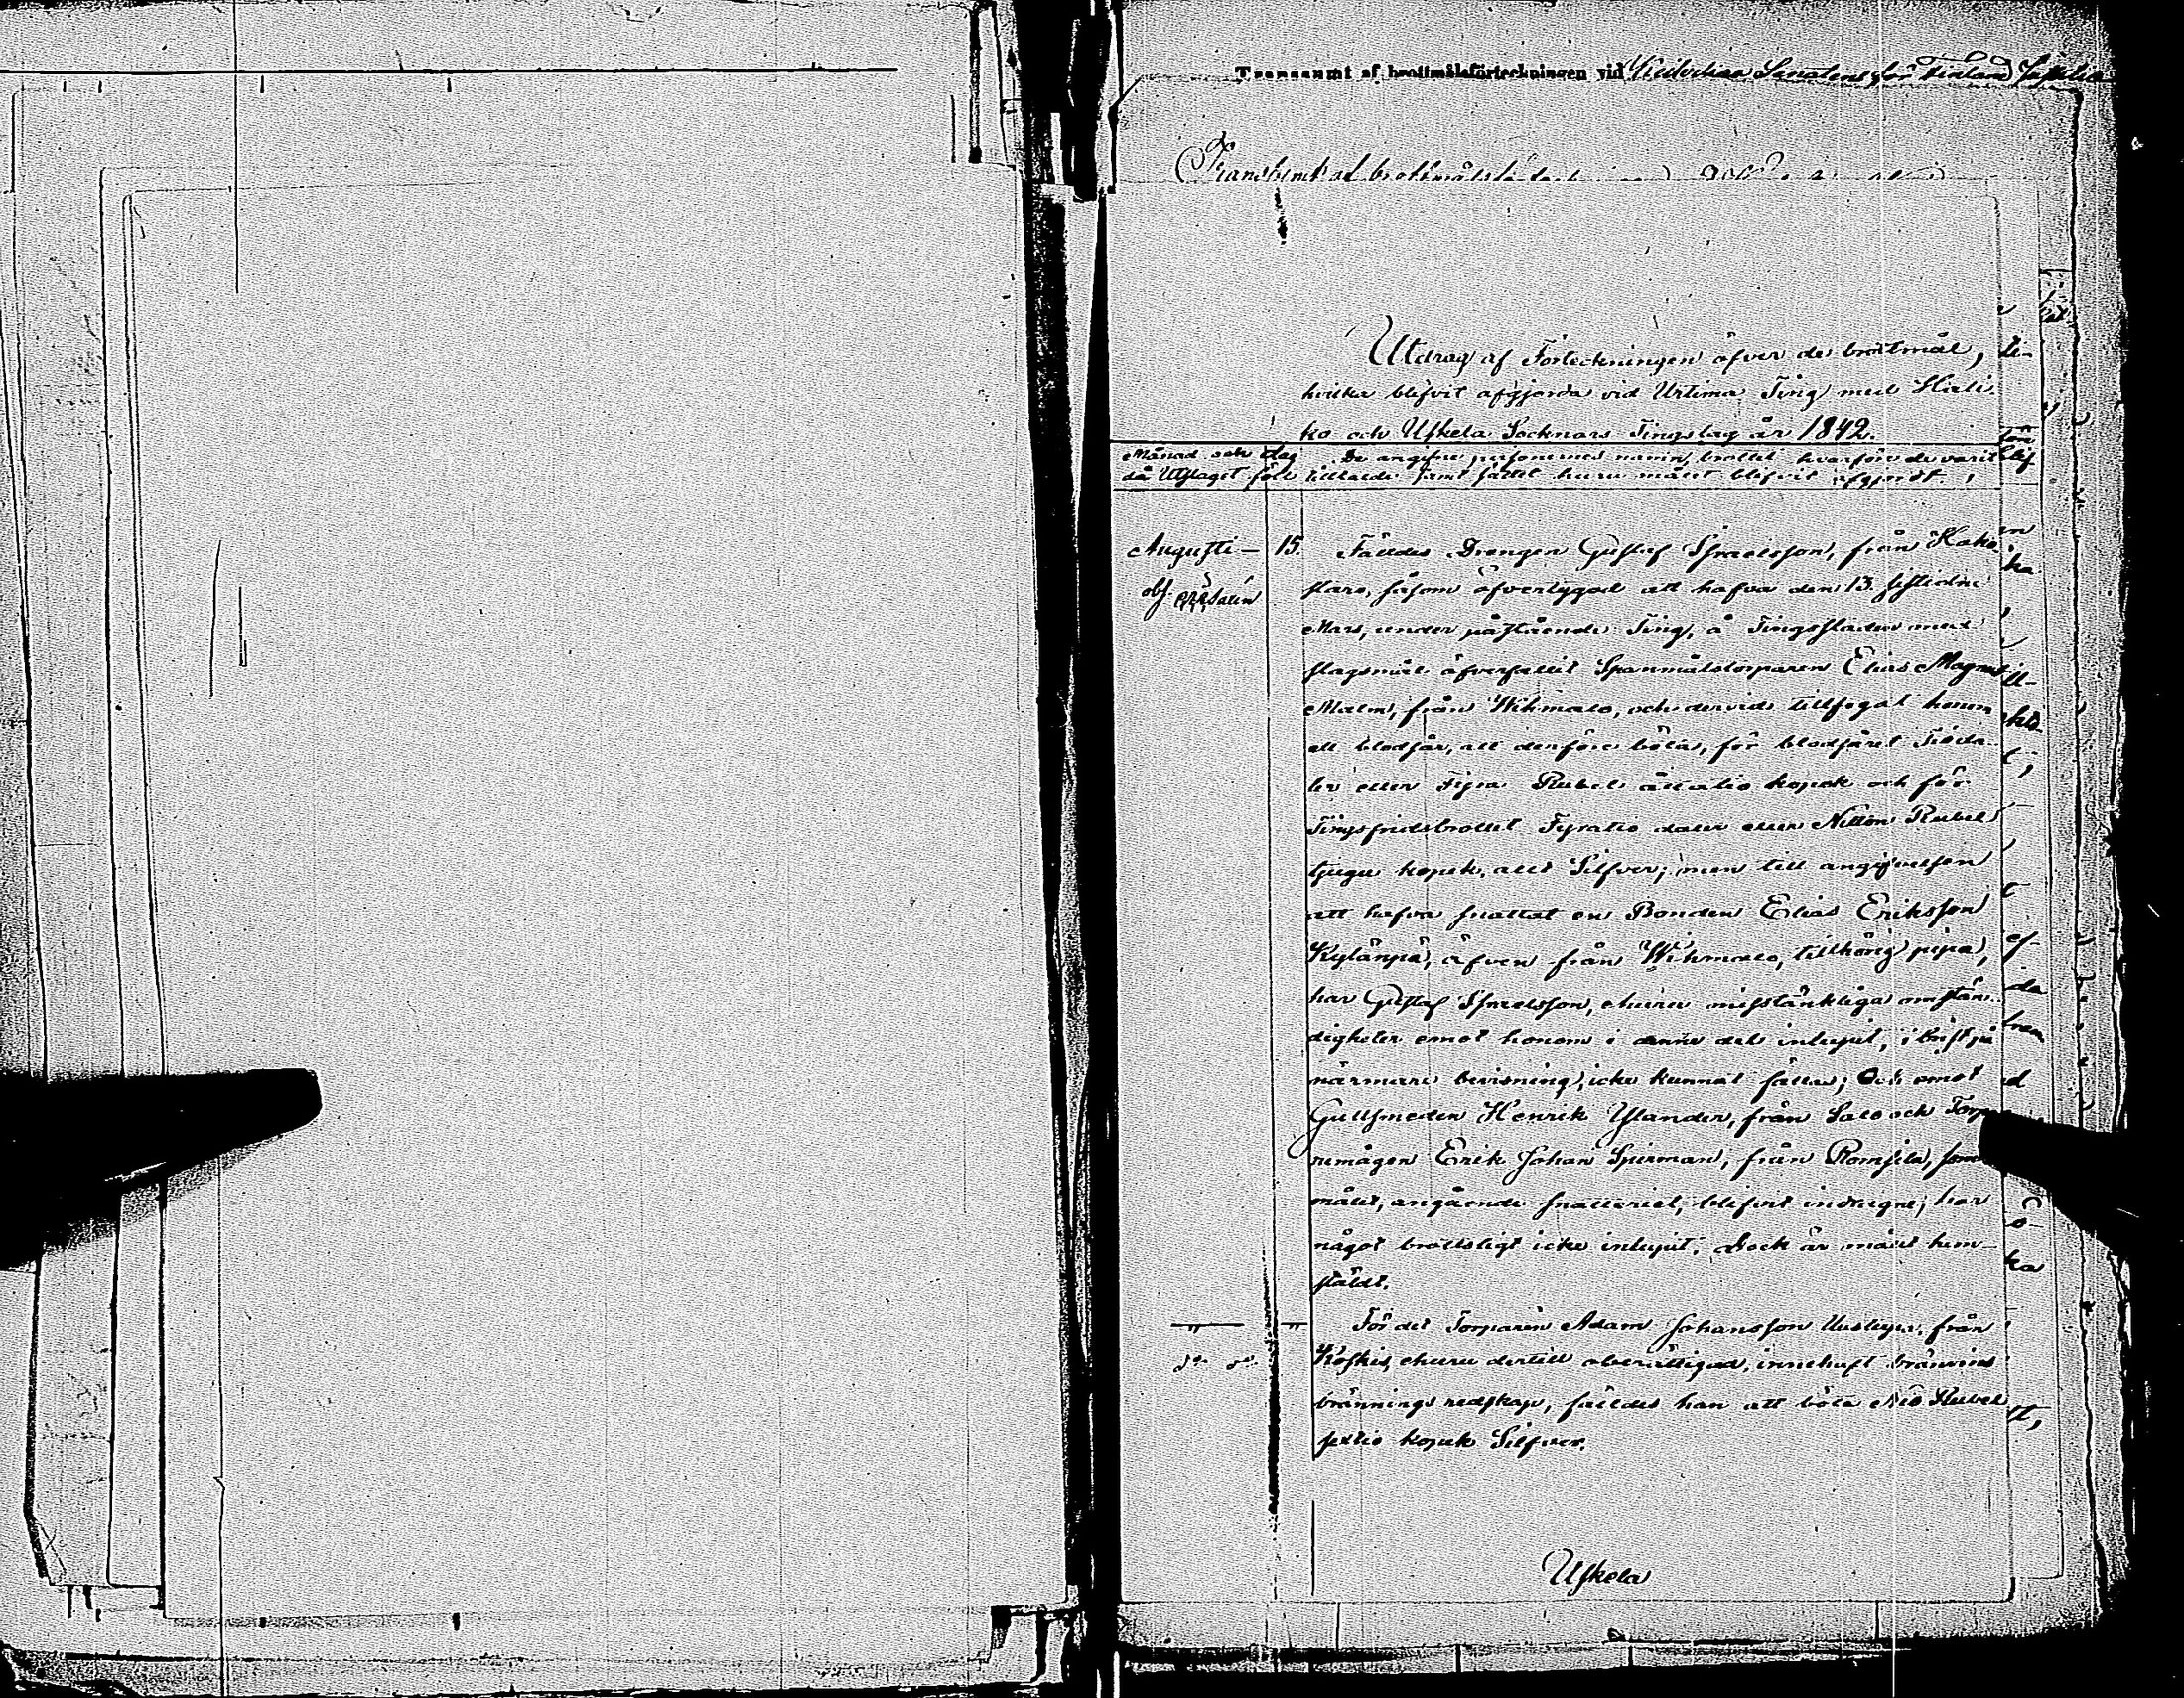 Transsumt af brottmålsförteckningen vid Kejserliga Senatens för Finland Justitiæ
Transsumt af brottmåls
Utdrag af Förteckningen öfver de brottmål,
hvilka blifvit afgjorda vid Urtima Ting med Hali-
ko och Uskela Socknars Tingslag år 1842.
Månad och dag De angifne personernes namn, brottet hvarföre de varit
då Utslaget föll tilltalde samt sättet huru målet blifvit afgjordt.
Augusti 15. Fälldes Drängen Gustaf Israelsson, från Kako-
stare, såsom öfvertygad att hafva den 13. sistledne
Mars, under påstående Ting, å Tingsstaden med
slagsmål öfverfallit Spanmålstorparen Elias Magnus
Malm, från Wihmalo, och dervid tillfogat honom
ett blodsår, att derföre böta, för blodsåret Tio da-
ler eller Fyra Rubel åttatio kopek och för
Tingsfridsbrottet Fyratio daler eller Nitton Rubel
tjugu kopek, allt Silfver; men till angifvelsen
att hafva snattat en Bonden Elias Eriksson
Kylänpä, äfven från Wihmalo, tillhörig pipa,
har Gustaf Israelsson, ehuru misstänkliga omstän-
digheter emot honom i denne del inlupit, i brist på
närmare bevisning, icke kunnat fällas; Och emot
Gullsmeden Henrik Ylander, från Salo och Torpa-
remågen Erik Johan Spirman, från Romsila, som i
målet, angående snatteriet, blifvit indragne, har
något brottsligt icke inlupit; Dock är målet hem-
stäldt.
För det Torparen Adam Johansson Uusitupa, från
Koskis, ehuru dertill oberättigad, innehaft bränvins
brännings redskap, fälldes han att böta Nio Rubel
sextio kopek Silfver.
Uskela